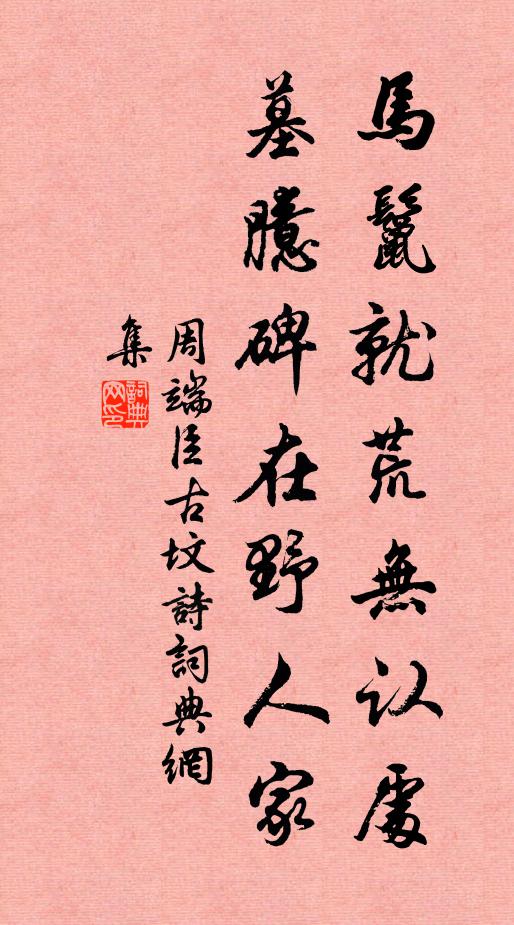 馬鬣就荒無认處
墓臆碑在野人家
周端臣古坟詩詞典網
集
詞典网印